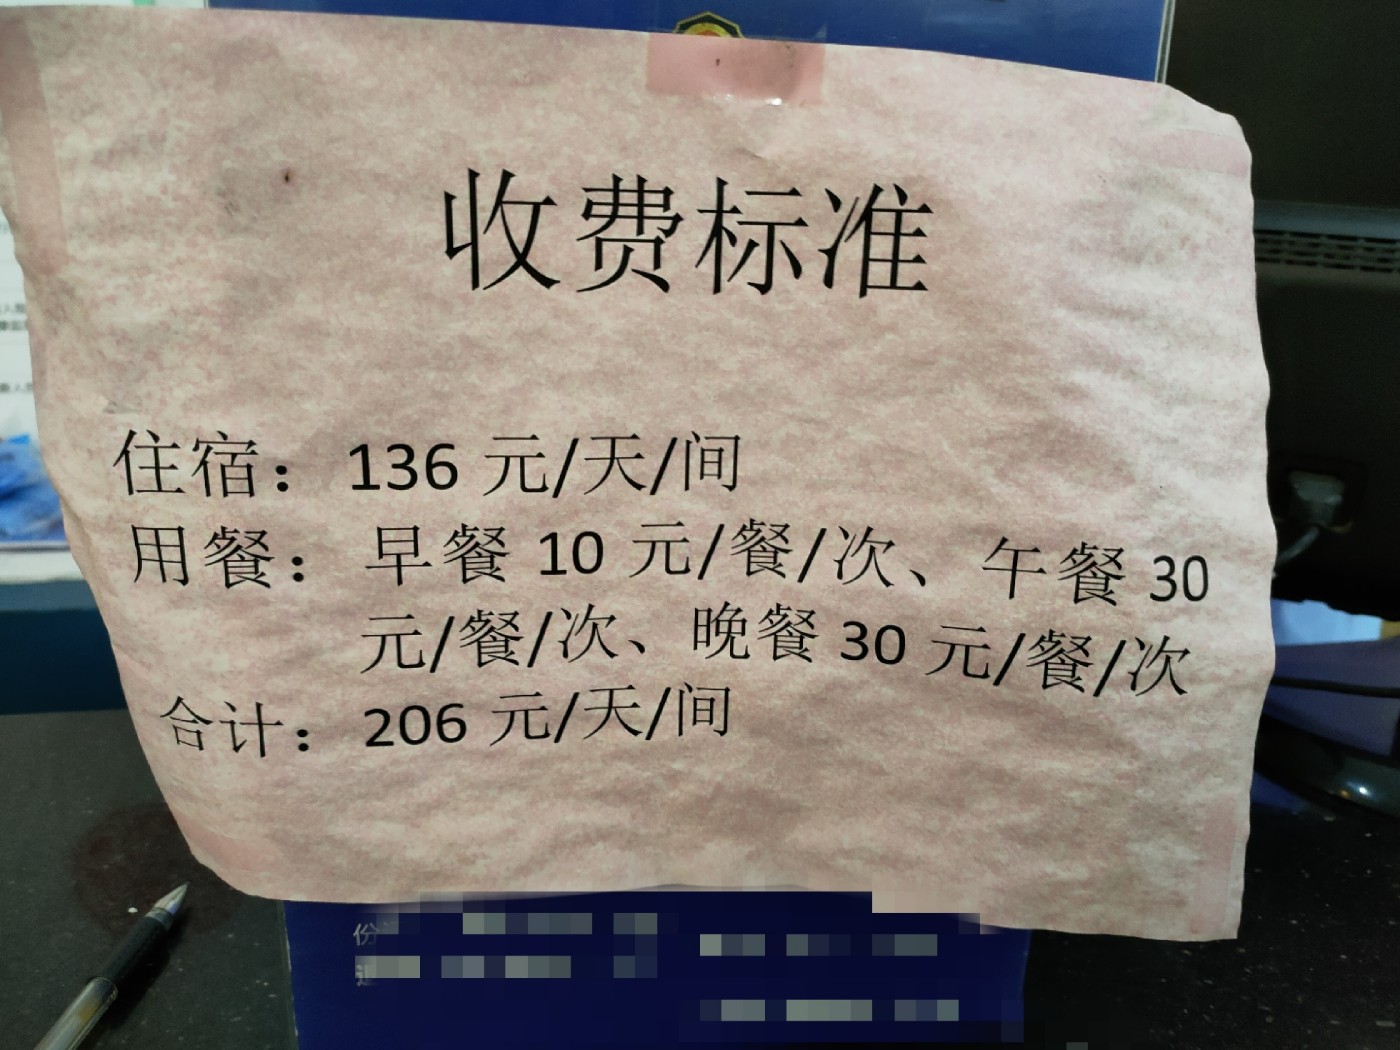 收费标准
住宿：136 元/天/间
用餐：早餐 10 元/餐/次、午餐 30
元/餐/次、晚餐 30 元/餐/次
合计：206 元/天/间
份